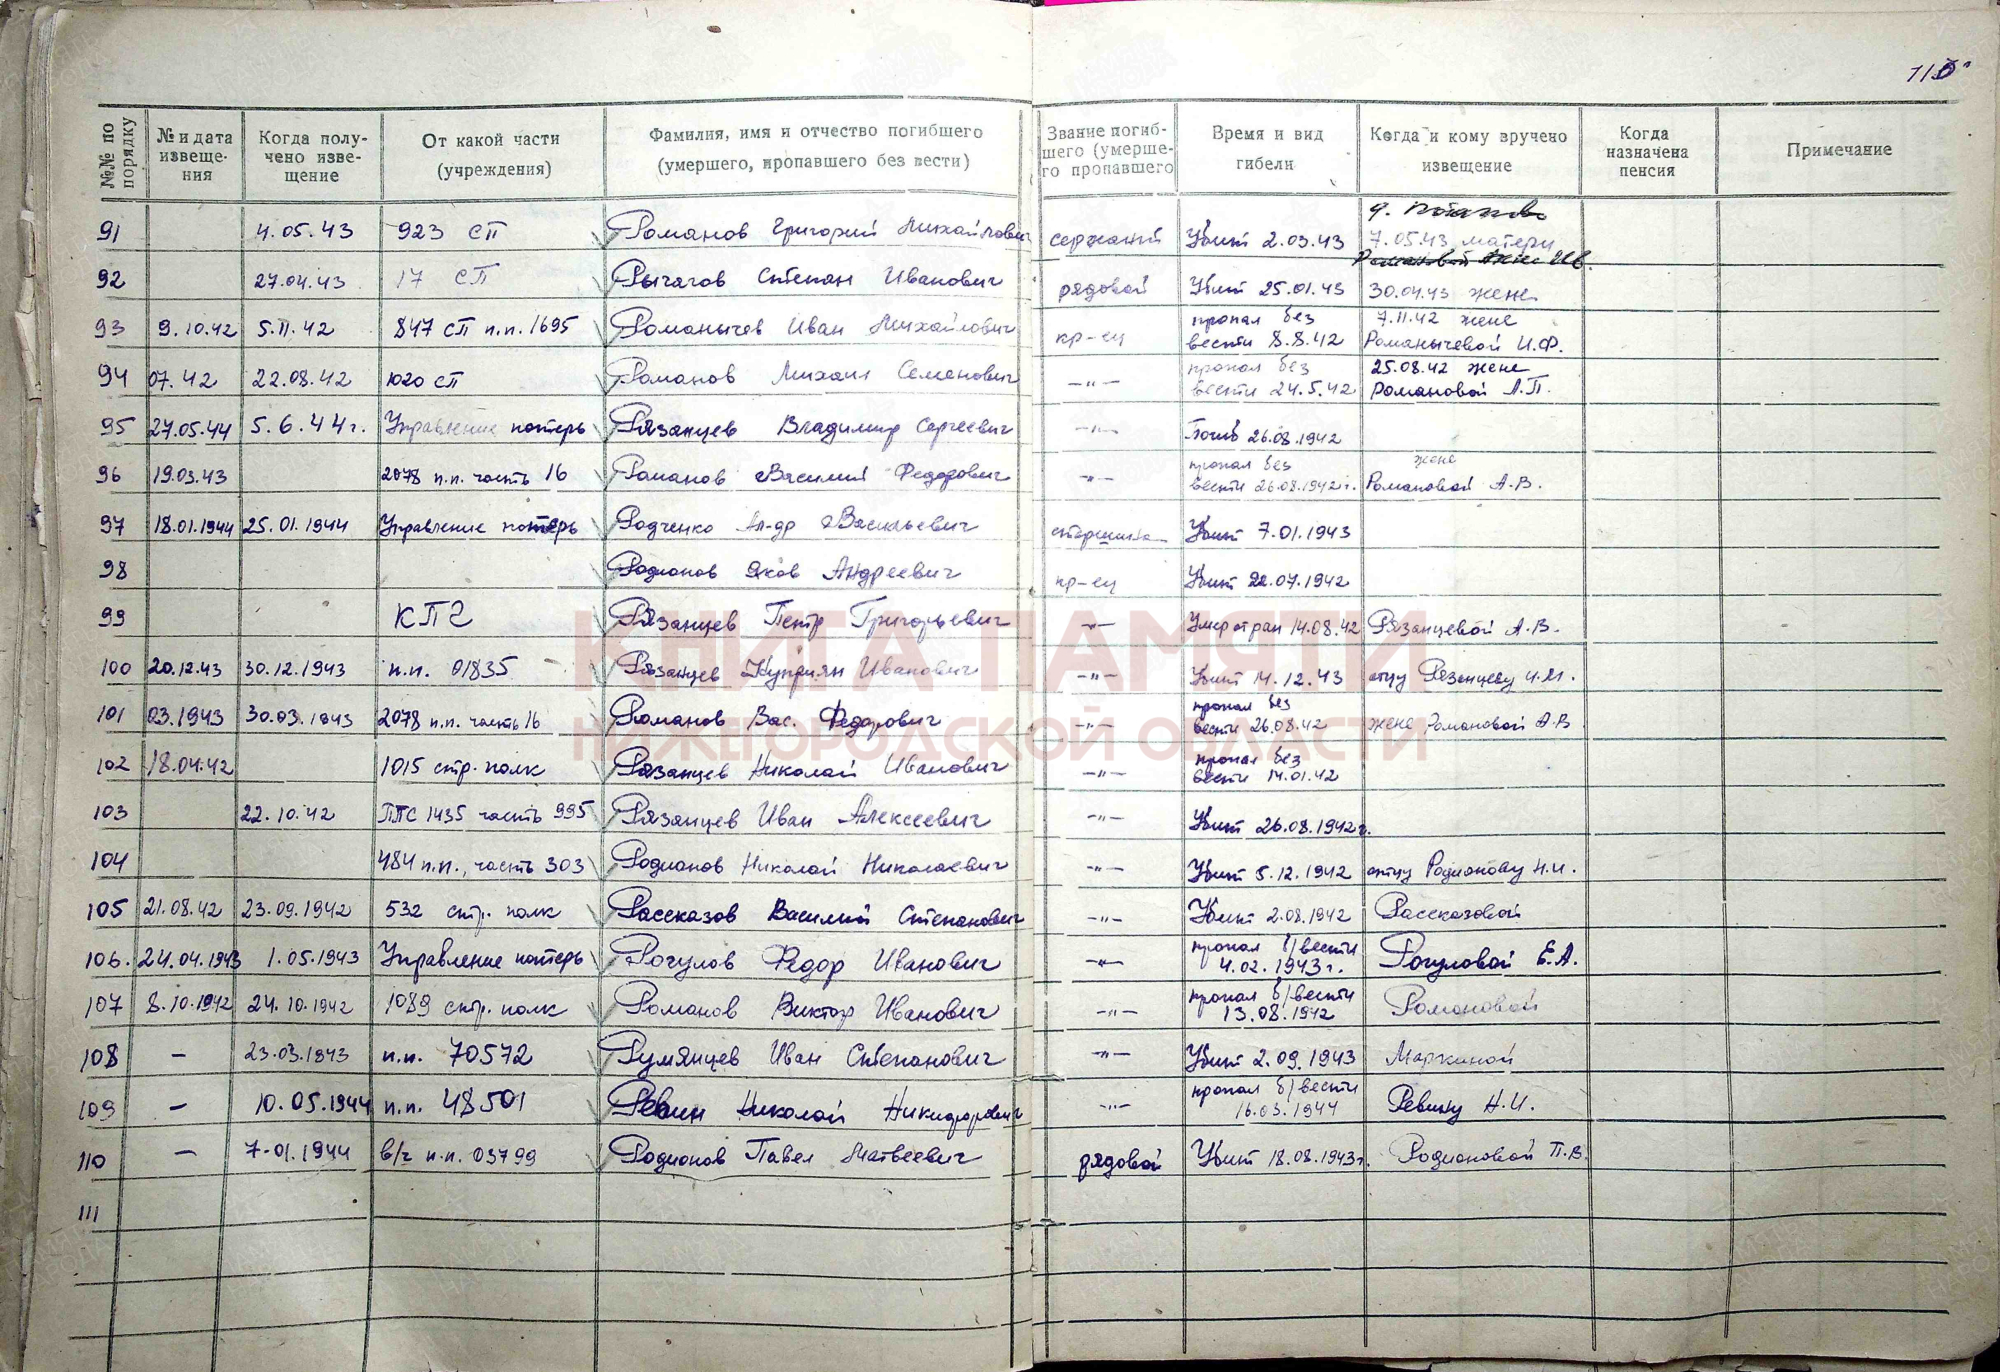 115
№№ по порядку | № и дата извещения | Когда получено извещение | От какой части (учреждения) | Фамилия, имя и отчество погибшего (умершего, пропавшего без вести) | Звание погибшего (умершего пропавшего | Время и вид гибели | Когда и кому вручено извещение | Когда назначена пенсия | Примечание
91 | | 4.05.43 | 923 СП | Романов Григорий Михайлович | сержант | Убит 2.03.43 | 7.05.43 матери
92 | | 27.04.43 | 17 СП | Рычагов Степан Иванович | рядовой | Убит 25.01.43 | 30.04.43 жене
93 | 9.10.42 | 5.11.42 | 847 СП п.п. 1695 | Романычев Иван Михайлович | кр-ец | пропал без вести 8.8.42 | 7.11.42 жене Романычевой И.Ф.
94 | 07.42 | 22.08.42 | 1020 СП | Романов Михаил Семенович | —"— | пропал без вести 24.5.42 | 25.08.42 жене Романовой А.П.
95 | 27.05.44 | 5.6.44г. | Управление потерь | Рязанцев Владимир Сергеевич | —"— | Погиб 26.08.1942
96 | 19.03.43 | | 2078 п.п. часть 16 | Романов Василий Федорович | —"— | пропал без вести 26.08.1942г. | жене Романовой А.В.
97 | 18.01.1944 | 25.01.1944 | Управление потерь | Родченко Ал-др Васильевич | старшина | Убит 7.01.1943
98 | | | | Родионов Яков Андреевич | кр-ец | Убит 22.07.1942
99 | | | КПЧ | Рязанцев Петр Григорьевич | —"— | Умер от ран 14.08.42 | Рязанцевой А.В.
100 | 20.12.43 | 30.12.1943 | п.п. 01835 | Рязанцев Куприян Иванович | —"— | Убит 14.12.43 | отцу Рязанцеву И.М.
101 | 03.1943 | 30.03.1943 | 2078 п.п. часть 16 | Романов Вас. Федорович | —"— | пропал без вести 26.08.42 | жене Романовой А.В
102 | 18.04.42 | | 1015 стр. полк | Рязанцев Николай Иванович | —"— | пропал без вести 14.01.42
103 | | 22.10.42 | ППС 1435 часть 995 | Рязанцев Иван Алексеевич | —"— | Убит 26.08.1942г.
104 | | | 484 п.п., часть 303 | Родионов Николай Николаевич | —"— | Убит 5.12.1942 | отцу Родионову Н.И.
105 | 21.08.42 | 23.09.1942 | 532 стр. полк | Рассказов Василий Степанович | —"— | Убит 2.08.1942 | Рассказовой
106. | 24.04.1943 | 1.05.1943 | Управление потерь | Рогулов Федор Иванович | —"— | пропал б/вести 4.02.1943г. | Рогуловой Е.А.
107 | 8.10.1942 | 24.10.1942 | 1089 стр. полк | Романов Виктор Иванович | —"— | пропал б/вести 13.08.1942 | Романовой
108 | — | 23.03.1943 | п.п. 70572 | Румянцев Иван Степанович | —"— | Убит 2.09.1943 | Маркиной
109 | — | 10.05.1944 | п.п. 48501 | Ревин Николай Никифорович | —"— | пропал б/вести 16.03.1944 | Ревину Н.И.
110 | — | 7-01.1944 | в/ч п.п. 03799 | Родионов Павел Матвеевич | рядовой | Убит 18.08.1943г. | Родионовой П.В.
111
КНИГА ПАМЯТИ
НИЖЕГОРОДСКОЙ ОБЛАСТИ